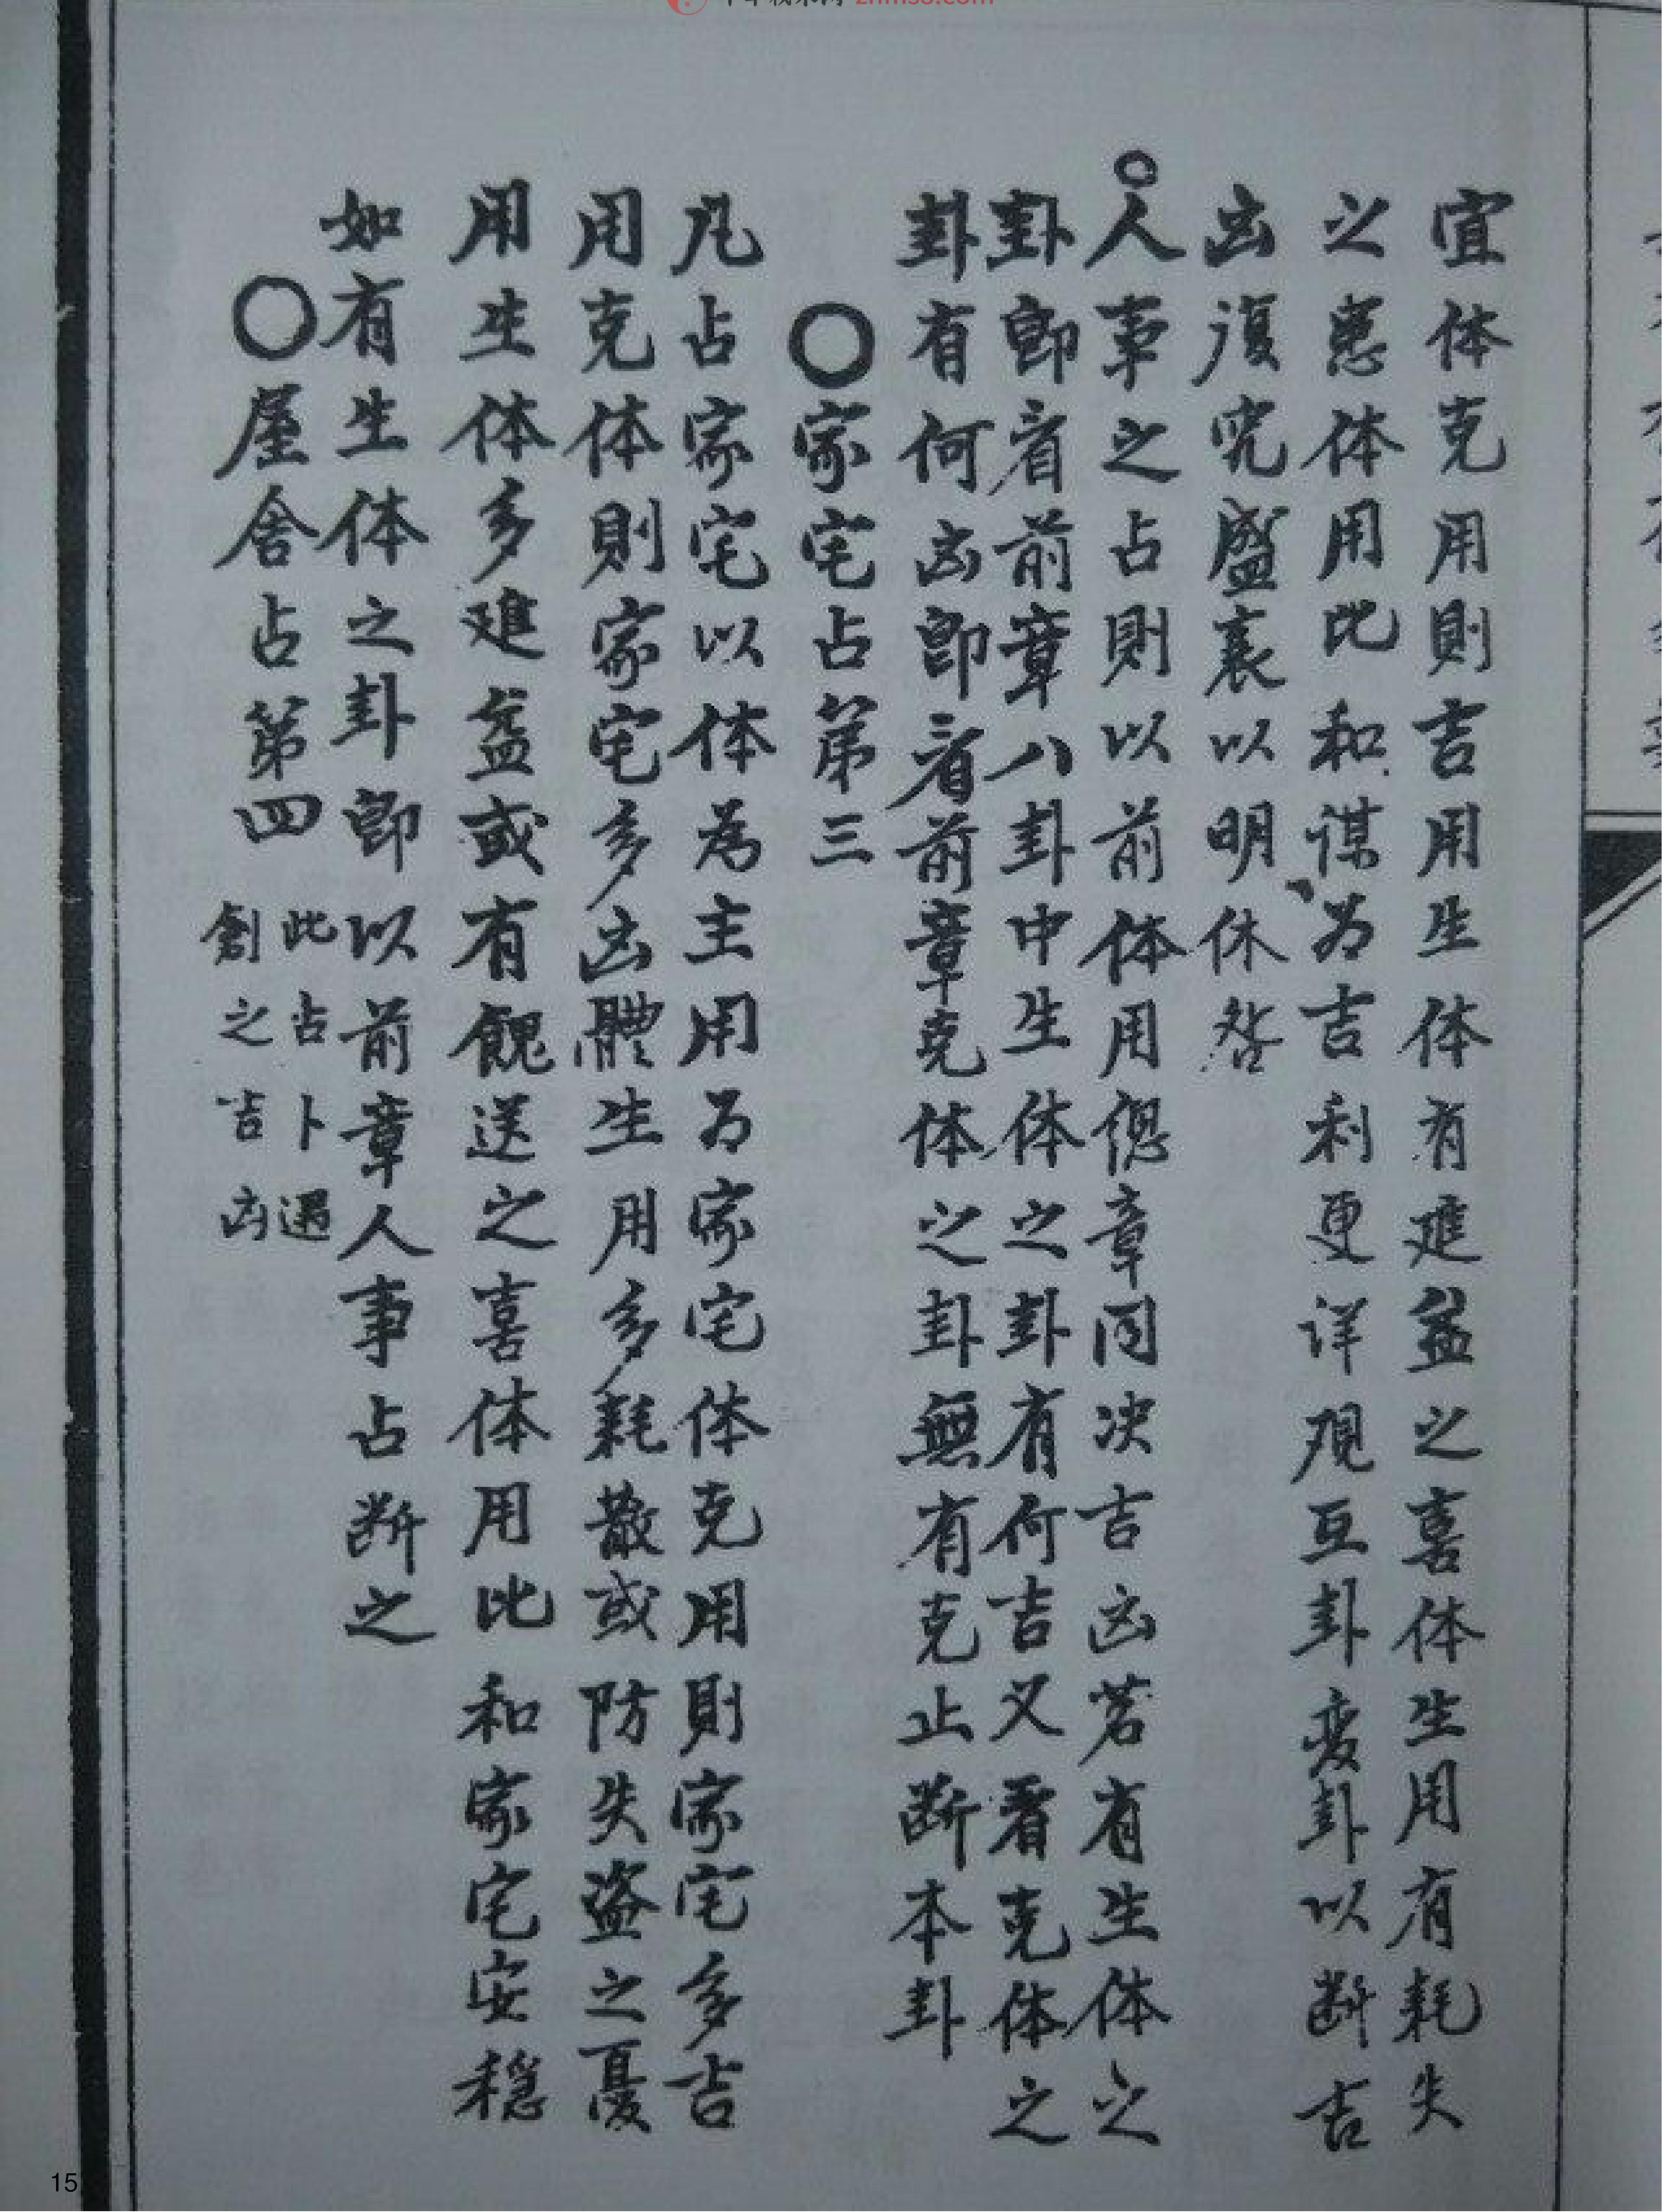 宜体克用則吉用生体有進益之喜体生用有耗失
之患体用比和謀为吉利更详观互卦变卦以断吉
凶復究盛衰以明休咎
○人事之占則以前体用总章同决吉凶若有生体之
卦即看前章八卦中生体之卦有何吉又看克体之
卦有何凶即看前章克体之卦無有克止断本卦
○家宅占第三
凡占家宅以体為主用为家宅体克用則家宅多吉
用克体則家宅多凶體生用多耗散或防失盗之憂
用生体多進益或有餽送之喜体用比和家宅安穏
如有生体之卦即以前章人事占断之
○屋舍占第四 此占卜遇
創之吉凶
15
zhms8.com